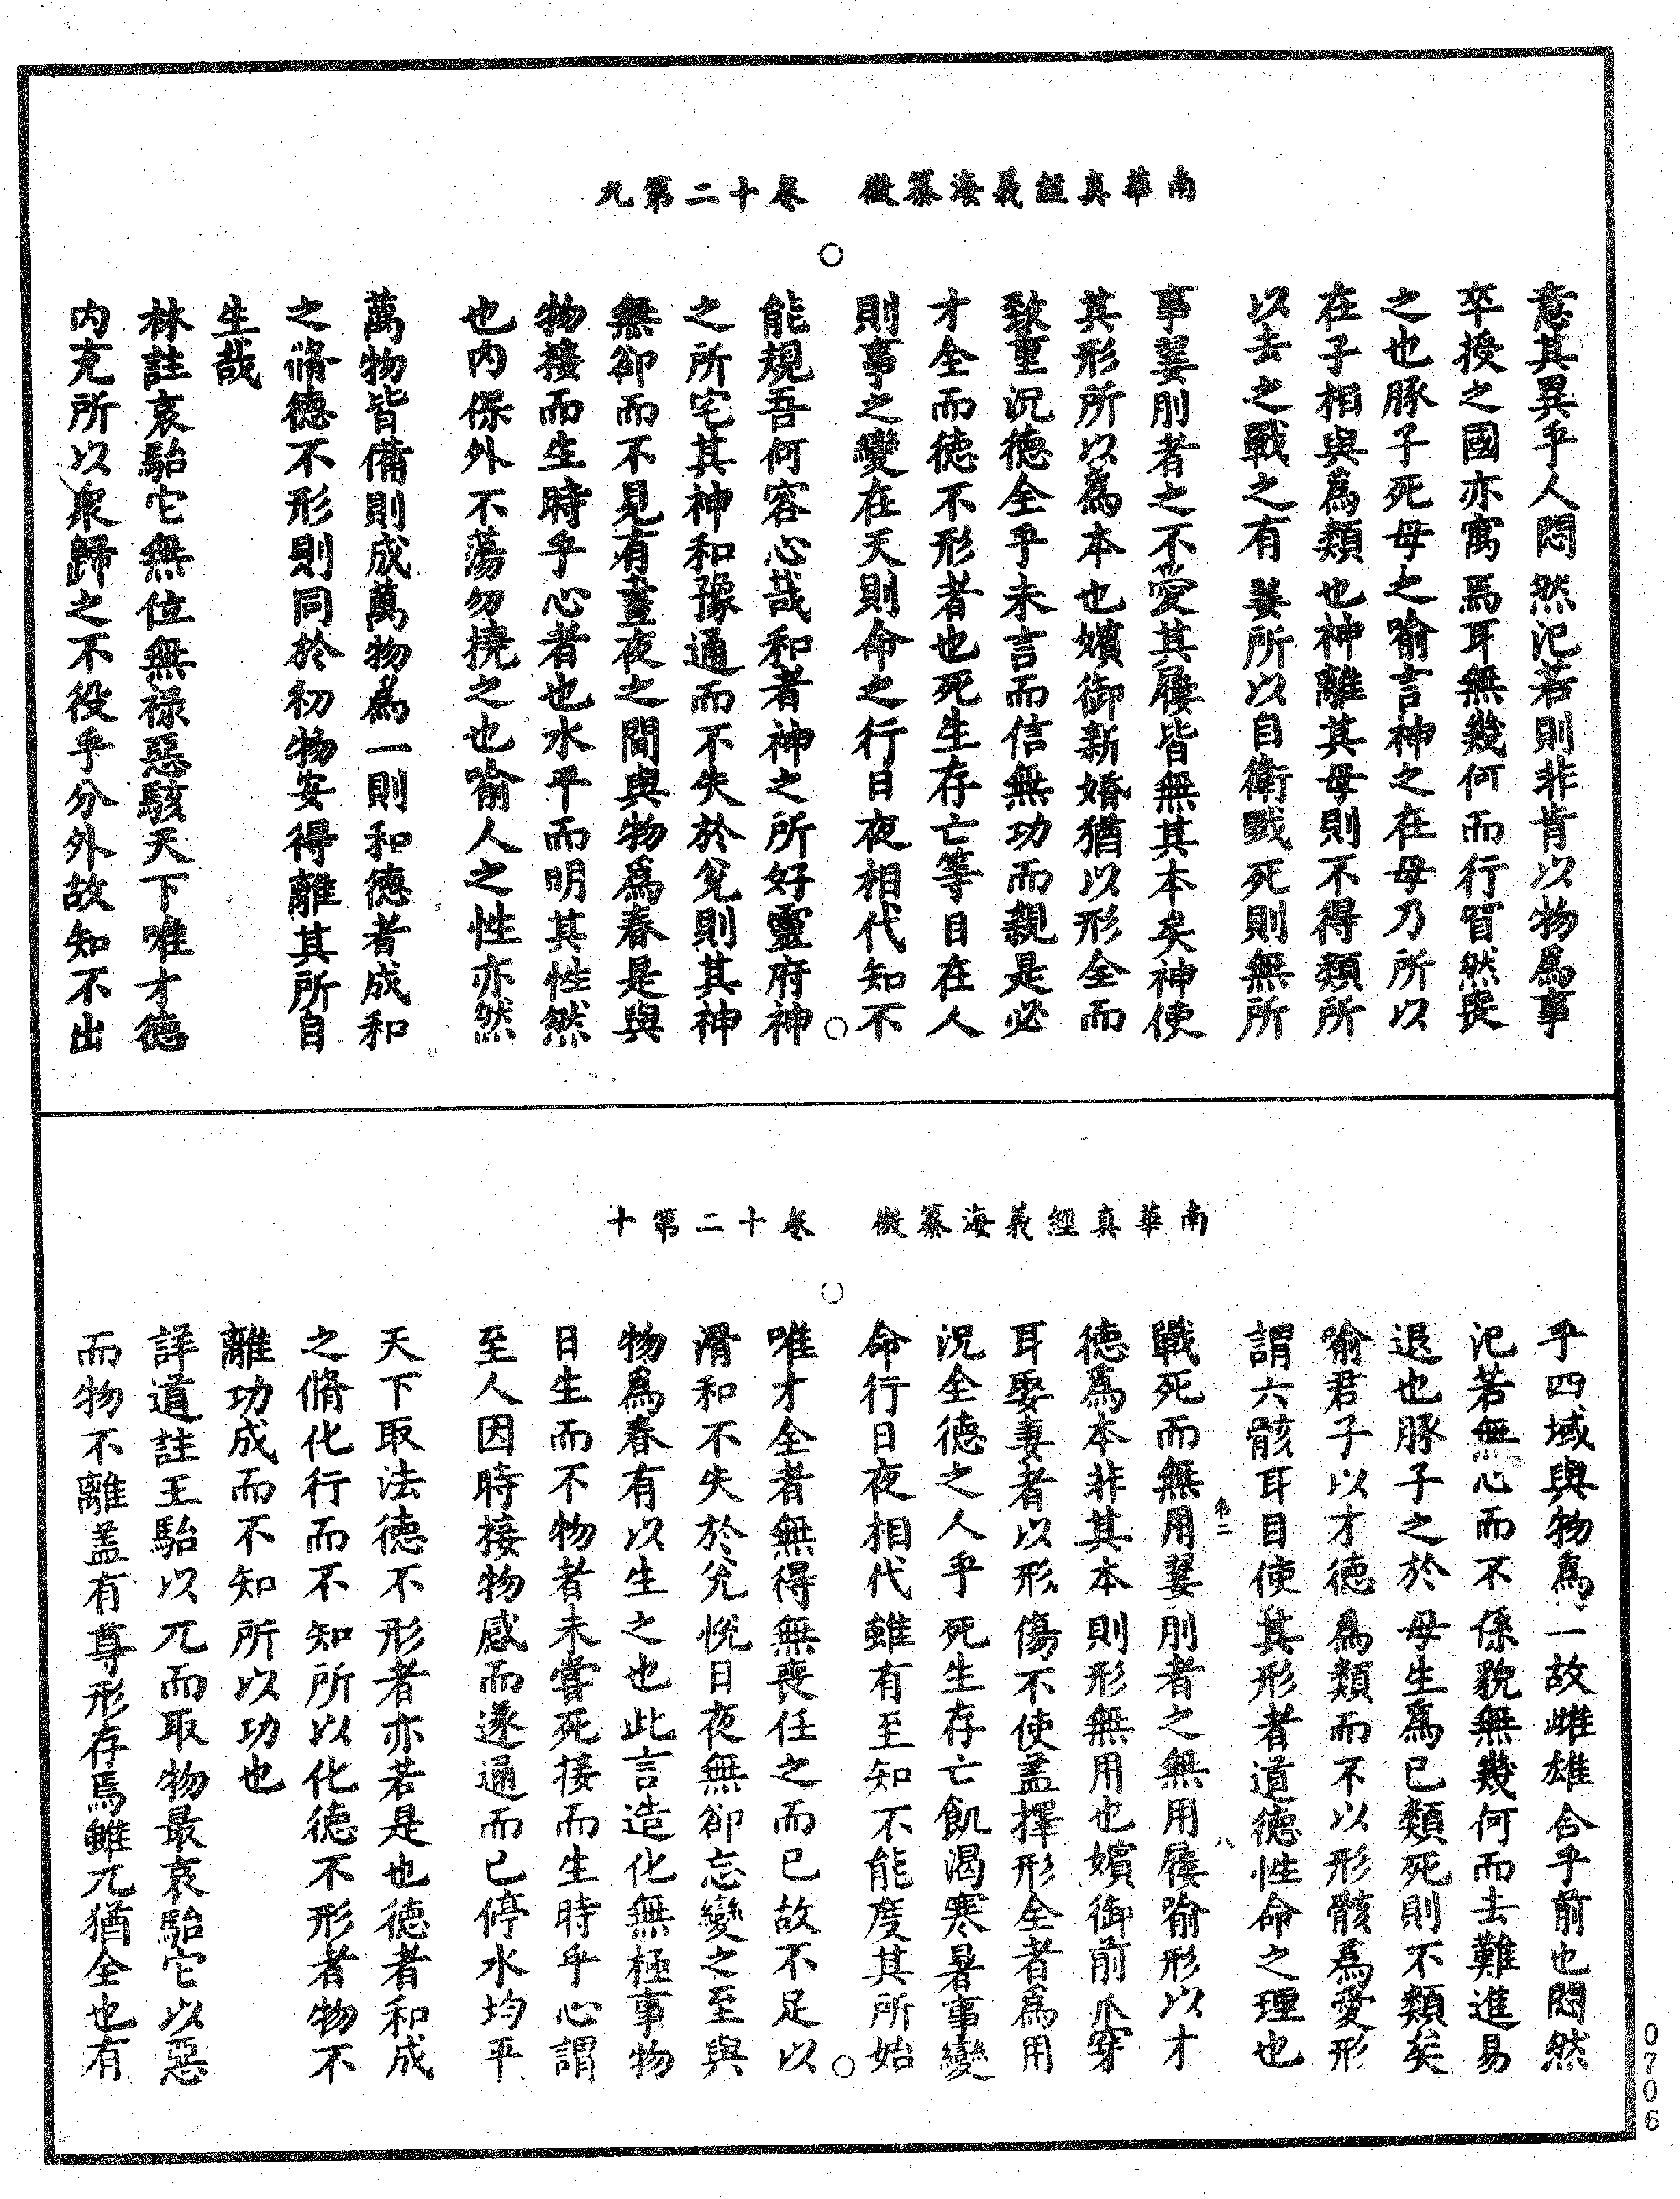 南華真經義海纂微　卷十二第九
意其異乎人悶然汜若則非肯以物爲事
卒授之國亦寓焉耳無幾何而行䘏然喪
之也豚子死母之喻言神之在母乃所以
在子相與爲類也神離其母則不得類所
以去之戰之有翣所以自衛戰死則無所
事翣刖者之不愛其屨皆無其本矣神使
其形所以爲本也嬪御新婚猶以形全而
致重況德全乎未言而信無功而親是必
才全而德不形者也死生存亡等目在人
則事之變在天則命之行日夜相代知不
能規吾何容心哉和者神之所好靈府神
之所宅其神和豫通而不失於兌則其神
無郤而不見有晝夜之間與物爲春是與
物接而生時乎心者也水平而明其性然
也內保外不蕩勿撓之也喻人之性亦然
萬物皆備則成萬物爲一則和德者成和
之脩德不形則同於初物安得離其所自
生哉
林註哀駘它無位無祿惡駭天下唯才德
內充所以衆歸之不役乎分外故知不出
南華真經義海纂微　卷十二第十
乎四域與物爲一故雌雄合乎前也悶然
汜若無心而不係貌無幾何而去難進易
退也豚子之於母生爲已類死則不類矣
喻君子以才德爲類而不以形骸爲愛形
謂六骸耳目使其形者道德性命之理也
戰死而無用翣刖者之無用屨喻形以才
德爲本非其本則形無用也嬪御前爪穿
耳娶妻者以形傷不使盖擇形全者爲用
況全德之人乎死生存亡飢渴寒暑事變
命行日夜相代雖有至知不能度其所始
唯才全者無得無喪任之而已故不足以
滑和不失於兌悅日夜無郤忘變之至與
物爲春有以生之也此言造化無極事物
日生而不物者未嘗死接而生時乎心謂
至人因時接物感而遂通而已停水均平
天下取法德不形者亦若是也德者和成
之脩化行而不知所以化德不形者物不
離功成而不知所以功也
詳道註王駘以兀而取物最哀駘它以惡
而物不離盖有尊形存焉雖兀猶全也有
0706